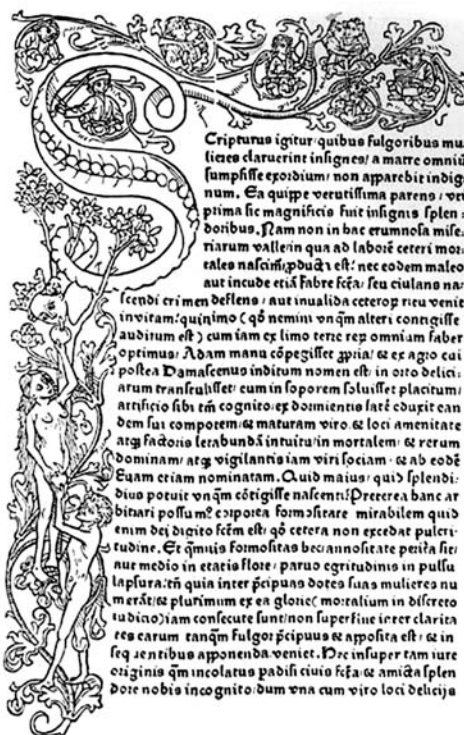 Scripturus igitur quibus fulgoribus mu
lieres claruerint insignes/ a matre omniū
sumpsisse exordium/ non apparebit indig
num. Ea quippe vetutissima parens/ vti
prima sic magnificis fuit insignis splen:
doribus. Nam non in hac erumnosa mise:
riarum valle in qua ad laborē ceteri mor:
tales nascimʼ,pducta est/ nec eodem maleo
aut incude etiā fabrefcā/ seu eiulans na:
scendi crimen deflens/ aut inualida ceterorꝝ ritu venit
in vitam/ quinimo (qđ nemini vnq̄m alteri contigisse
auditum est) cum iam ex limo terre rerꝝ omnium faber
optimus/ Adam manu cōpegisset ,ppria/ & ex agro cui
postea Damascenus inditum nomen est/ in orto delici:
arum transtulisset/ cum in soporem soluisset placitum/
artificio sibi tm̄ cognito/ ex dormientis latē eduxit ean
dem sui compotem/ & maturam viro. & loci amenitate
atqꝫ factoris letabundā intuitu/ in mortalem/ & rerum
dominam/ atqꝫ vigilantis iam viri sociam/ & ab eodē
Euam etiam nominatam. Quid maius/ quid splendi:
dius potuit vnq̄m cōtigisse nascenti? Preterea hanc ar
bitrari possumʼ corporea formositate mirabilem quid
enim dei digito fcm̄ est/ qđ cetera non excedat pulcri:
tudine. Et q̄muis formositas hec annositate peritura sit/
aut medio in etatis flore/ paruo egritudinis in pulsu
lapsura/ tn̄ quia inter p̄cipuas dotes suas mulieres nu
merāt/ & plurimum ex ea glorie (mortalium indiscreto
iudicio) iam consecute sunt/ non superflue inter clarita
tes earum tanq̄m fulgor p̄cipuus & apposita est/ & in
seq̄uentibus apponenda veniet. Hec insuper tam iure
originis q̄m incolatus padisi ciuis fcā/ & amicta splen
dore nobis incognito/ dum vna cum viro loci delicijs